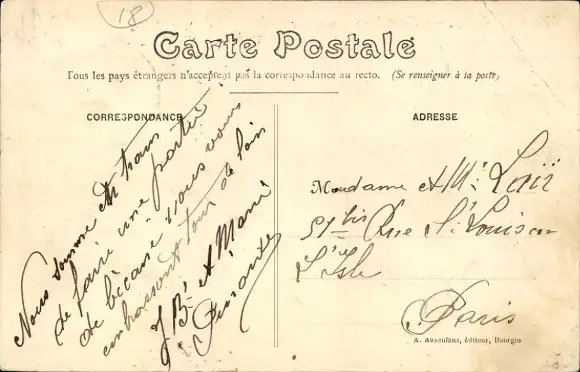 18
Carte Postale
Tous les pays étrangers n'acceptent pas la correspondance au recto. (Se renseigner à la poste)
CORRESPONDANCE
Nous somme en train
de faire une partie
de bécane nous vous
embrassont tous de loin
J. Bte et Marie
ADRESSE
Mondame et Mr Laïï
51 bis Rue St Louis en
L'Isle
Paris
A. Auxenfans, éditeur, Bourges